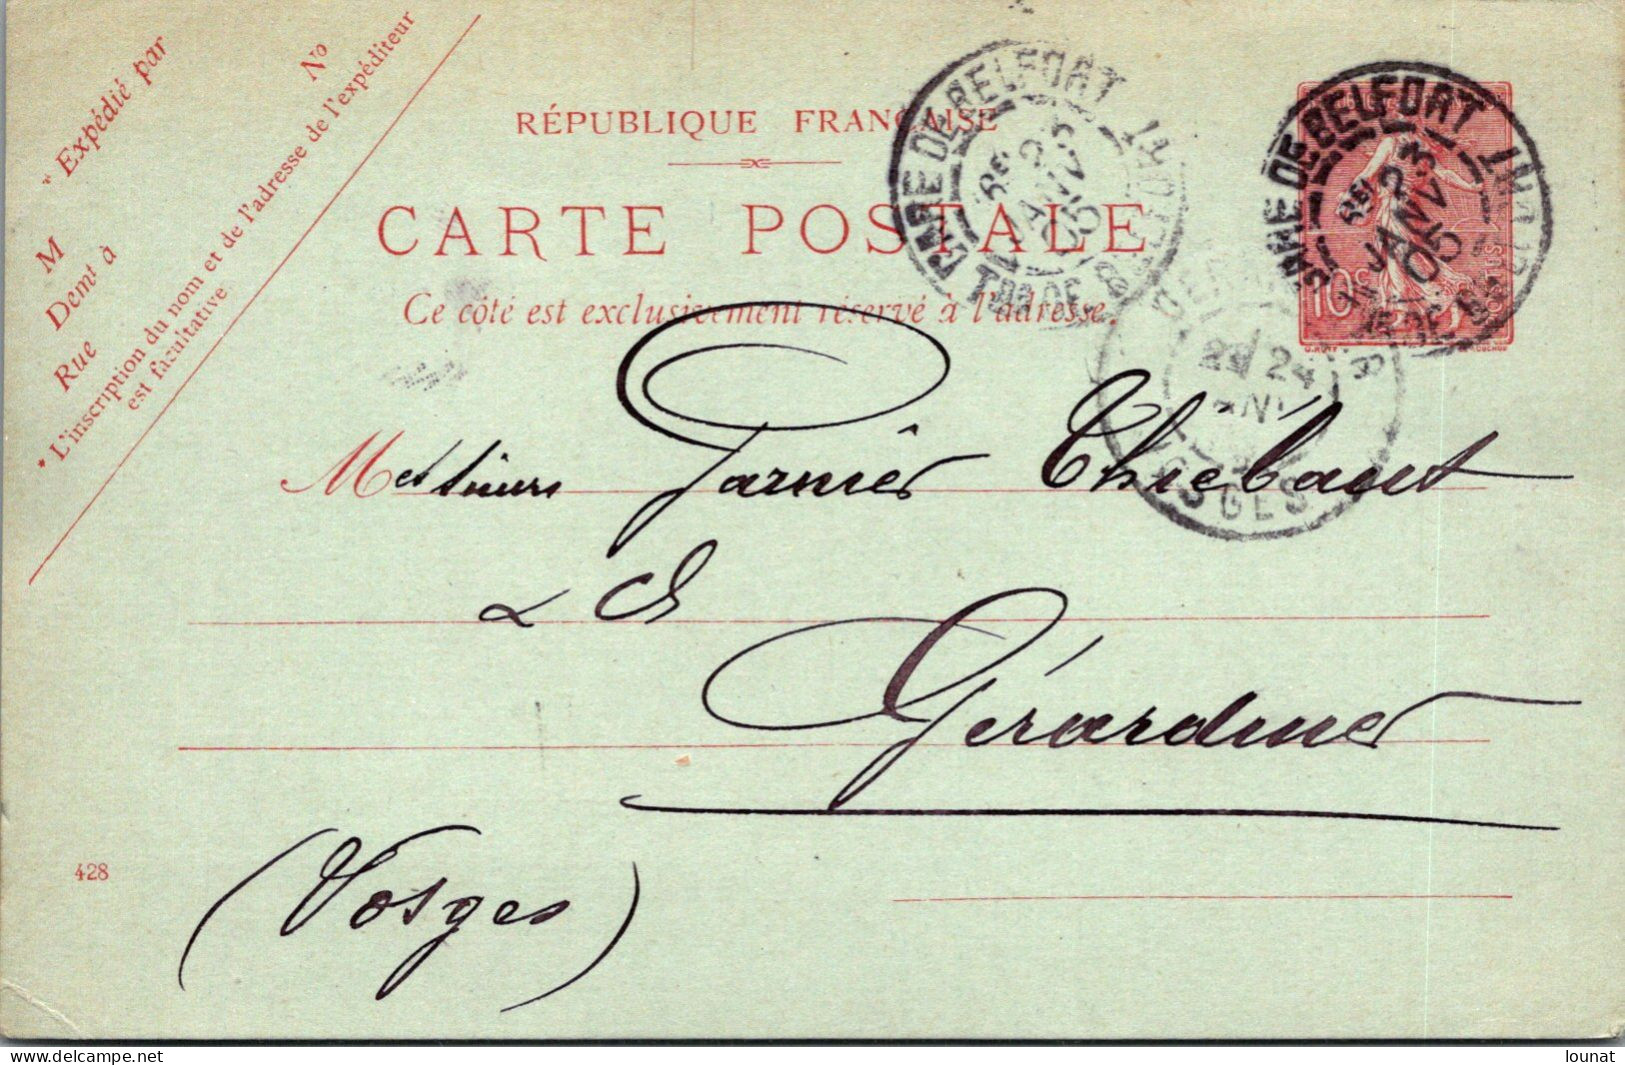 * Expédié par
M
Demt à
Rue
No
* L'inscription du nom et de l'adresse de l'expéditeur
est facultative.
RÉPUBLIQUE FRANÇAISE
CARTE POSTALE
Ce côté est exclusivement réservé à l'adresse.
DE BELFORT
JANV
05
DE BELFORT
JANV
05
10c
24
VOSGES
Messieurs Garnier Thiébaut
& Cie
Gérardmer
(Vosges)
428
www.delcampe.net
lounat